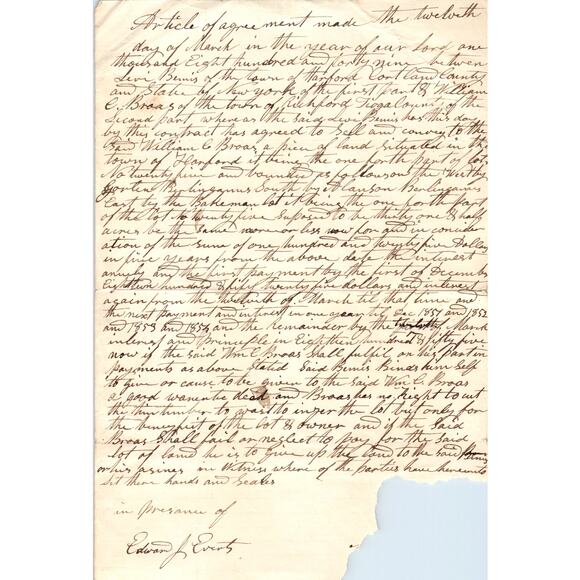 Article of agreement made the twelvth
day of March in the year of our Lord one
thousand Eight hundred and forty nine between
Levi Bemis of the town of Harford Cortland County
and State of New York of the first part & William
C. Broas of the town of Richford Tioga County of the
Second part where as the Said Levi Bemis has this day
by this contract has agreed to Sell and convey to the
Said William C Broas a piece of land Situated in the
town of Harford it being the one forth part of lot
No twenty five and bounded as follows on the West by
Berlingames South by Hanson Berlingames
East by the Bakeman lot it being the one forth part
of the lot No twenty five Suposed to be thirty one & half
acres be the Same more or less now for and in consider
ation of the sume of one hundred and twenty five Dollars
in five years from the above date the interest
anualy and the first payment by the first of December
Eighteen hundred & fifty twenty five dollars and interest
again from the twelvth of March til that time and
the next payment and intrest in one year by Dec 1851 and 1852
and 1853 and 1854 and the remainder by the twelvth March
interest and Princeple in Eighteen hundred & fifty five
now if the said Wm C Broas Shall fulfil on his Part in
payments as above Stated Said Bemis Binds him Self
to give or cause to be given to the Said Wm C. Broas
a good warente dead and Broas has no Right to cut
the timber to the lot but only for
the benefit of the lot & owner and if the Said
Broas Shall fail or neglect to pay for the Said
lot of land he is to Give up the land to the said Bemis
or his asines in Witness where of the Parties have hereunto
Set there hands and Seales
in Presance of
Edward J Everts